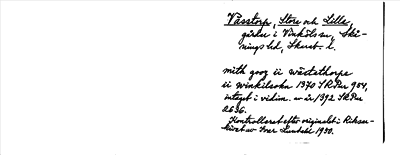 Vässtorp, Stora och Lilla,
gårdar i Vinköls sn, Skå-
nings hd, Skarab. l.
mith gooz ii wästethorpe
ii winkilsokn 1370 SRPn 984,
intaget i vidim. av år 1392 SRPn
2636.
Kontrollerat efter originalet i Riksar-
kivet av Ivar Lundahl 1930.